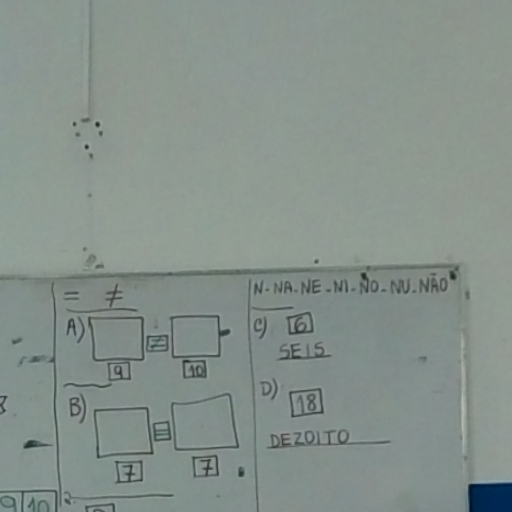 = ≠
A) ≠
9 10
B) =
7 7
2.
9 10
N-NA-NE-NI-NO-NU-NÃO
C) 6
SEIS
D) 18
DEZOITO